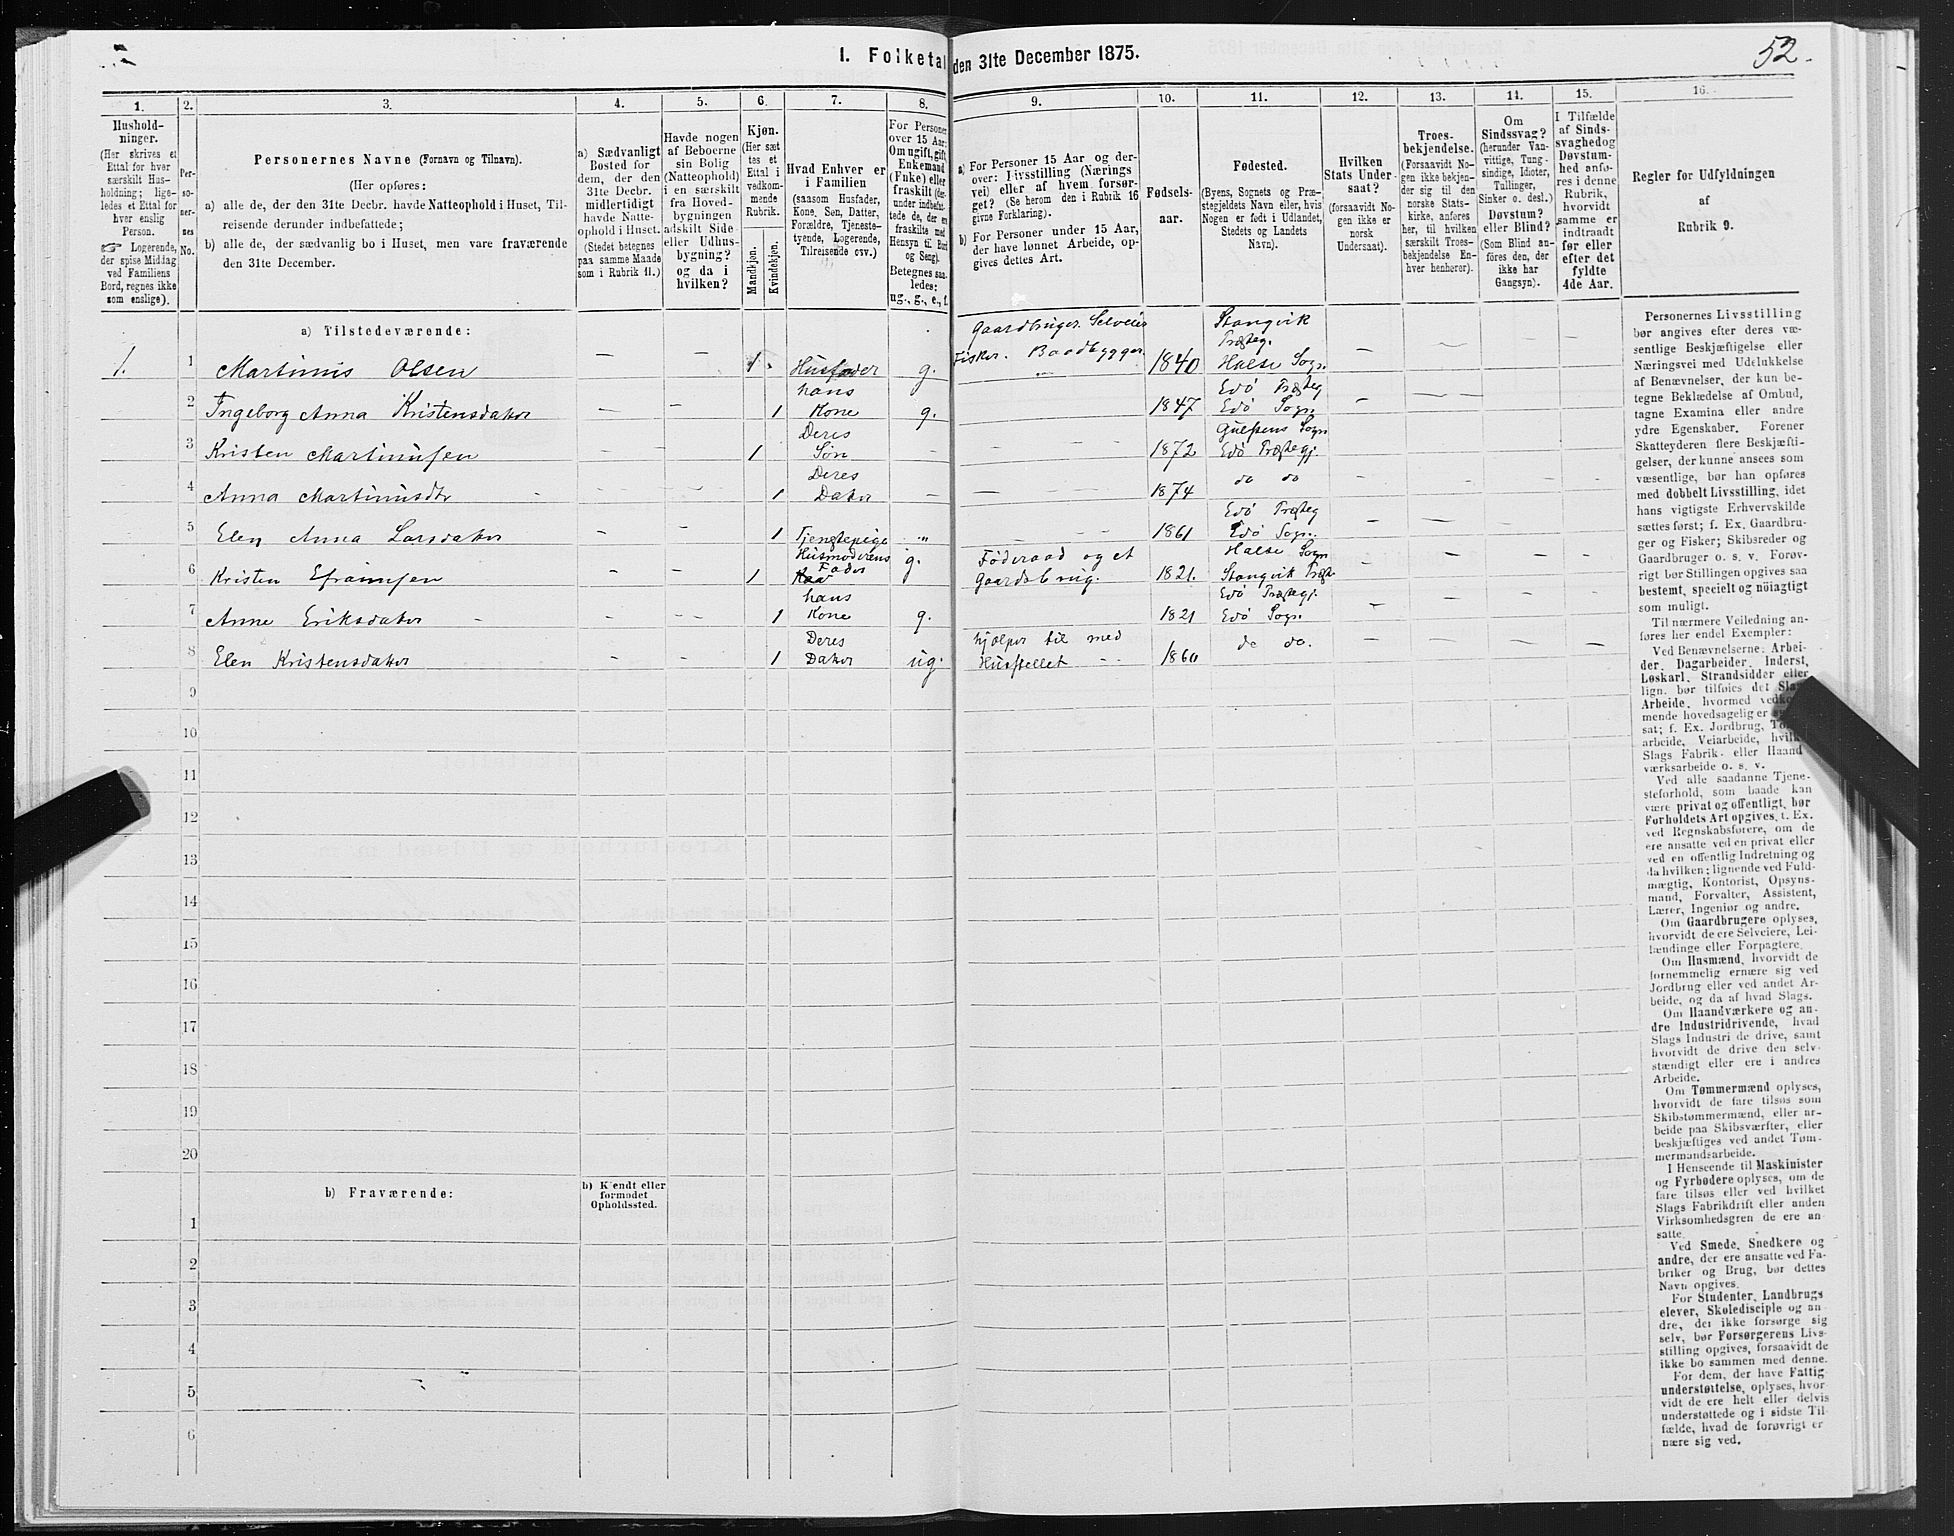 I. Folketal den 31te December 1875.
52.
1. 2. 3. 4. 5. 6. 7. 8. 9. 10. 11. 12. 13. 14. 15. 16.
Hushold-
ninger.
(Her skrives et
Ettal for hver
særskilt Hus-
holdning; lige-
ledes et Ettal for
hver enslig
Person.
☞ Logerende,
der spise Middag
ved Familiens
Bord, regnes ikke
som enslige).
Per-
so-
ner-
nes
No.
Personernes Navne (Fornavn og Tilnavn).
(Her opføres:
a) alle de, der den 31te Decbr. havde Natteophold i Huset, Til-
reisende derunder indbefattede;
b) alle de, der sædvanlig bo i Huset, men vare fraværende
den 31te December.
a) Sædvanligt
Bosted for
dem, der den
31te Decbr.
midlertidigt
havde Natte-
ophold i Huset.
(Stedet betegnes
paa samme Maade
som i Rubrik 11.)
Havde nogen
af Beboerne
sin Bolig
(Natteophold)
i en særskilt
fra Hoved-
bygningen
adskilt Side-
eller Udhus-
bygning?
og da i
hvilken?
Kjøn.
(Her sæt-
tes et
Ettal i
vedkom-
mende
Rubrik.
Mandkjøn.
Kvindekjøn.
Hvad Enhver er
i Familien
(saasom Husfader,
Kone, Søn, Datter,
Forældre, Tjeneste-
tyende, Logerende,
Tilreisende osv.)
For Personer
over 15 Aar:
Om ugift, gift,
Enkemand
(Enke) eller
fraskilt (der-
under indbefat-
tede de, der ere
fraskilte med
Hensyn til Bord
og Seng).
Betegnes saa-
ledes:
ug., g., e., f.
a) For Personer 15 Aar og der-
over: Livsstilling (Nærings-
vei) eller af hvem forsør-
get? (Se herom den i Rubrik 16
givne Forklaring).
b) For Personer under 15 Aar,
der have lønnet Arbeide, op-
gives dettes Art.
Fødsels-
aar.
Fødested.
(Byens, Sognets og Præ-
stegjeldets Navn eller, hvis
Nogen er født i Udlandet,
Stedets og Landets
Navn).
Hvilken
Stats Under-
saat?
(forsaavidt No-
gen ikke er
norsk
Undersaat).
Troes-
bekjendelse.
(Forsaavidt No-
gen ikke bekjen-
der sig til den
norske Stats-
kirke, anføres
her, til hvilken
særskilt Troes-
bekjendelse En-
hver henhører).
Om
Sindssvag?
(herunder Van-
vittige, Tung-
sindige, Idioter,
Tullinger,
Sinker o. desl.)
Døvstum?
eller Blind?
(Som Blind an-
føres den, der
ikke har
Gangsyn).
I Tilfælde
af Sinds-
svaghed og
Døvstum-
hed anfø-
res i denne
Rubrik,
hvorvidt
samme er
indtraadt
før eller
efter det
fyldte
4de Aar.
Regler for Udfyldningen
af
Rubrik 9.
a) Tilstedeværende:
1. 1 Martinus Olsen — — 1 Husfader g. Gaardbruger. Selveier Fisker. Baadbygger. 1840 Stangvik Præsteg. Halse Sogn
2 Ingeborg Anna Kristensdater — — 1 hans Kone g. 1847 Edö Præsteg Edö Sogn.
3 Kristen Martinussen — — 1 Deres Søn — 1872 Sogn Edö Præstegj.
4 Anna Martinusdtr — — 1 Deres Dater — 1874 do do
5 Elen Anna Larsdater — — 1 Tjenstepige 1861 Edö Præsteg Edö Sogn.
6 Kristen Efraimsen — — 1 Husmoderens Fader g. Föderaad og et Gaardsbrug. 1821. Halse Sogn Stangvik Præst
7 Anne Eriksdater — — 1 hans Kone g. 1821 Edö Præstegj. Edö Sogn.
8 Elen Kristensdater — — 1 Deres Dater ug. hjælper til med Husstellet 1860 do do.
9
10
11
12
13
14
15
16
17
18
19
20
b) Fraværende:
b) Kjendt eller
formodet
Opholdssted.
1
2
3
4
5
6
Personernes Livsstilling
bør angives efter deres væ-
sentlige Beskjæftigelse eller
Næringsvei med Udelukkelse
af Benævnelser, der kun be-
tegne Beklædelse af Ombud,
tagne Examina eller andre
ydre Egenskaber. Forener
Skatteyderen flere Beskjæfti-
gelser, der kunne ansees som
væsentlige, bør han opføres
med dobbelt Livsstilling, idet
hans vigtigste Erhvervskilde
sættes først; f. Ex. Gaardbru-
ger og Fisker; Skibsreder og
Gaardbruger o. s. v. Forøv-
rigt bør Stillingen opgives saa
bestemt, specielt og nöiagtigt
som muligt.
Til nærmere Veiledning an-
føres her endel Exempler:
Ved Benævnelserne: Arbei-
der, Dagarbeider, Inderst,
Løskarl, Strandsidder eller
lign. bør tilføies det Slags
Arbeide, hvormed vedkom-
mende hovedsagelig er
sat; f. Ex. Jordbrug,
arbeide, Veiarbeide, hvilket
Slags Fabrik- eller Haand-
værksarbeide o. s. v.
Ved alle saadanne Tjene-
steforhold, som baade kan
være privat og offentligt, bør
Forholdets Art opgives, t. Ex.
ved Regnskabsførere, om de
ere ansatte ved en privat eller
ved en offentlig Indretning og
da hvilken; lignende ved Fuld-
mægtig, Kontorist, Opsyns-
mand, Forvalter, Assistent,
Lærer, Ingeniør og andre.
Om Gaardbrugere oplyses,
hvorvidt de ere Selveiere, Lei-
lændinge eller Forpagtere.
Om Husmænd, hvorvidt de
fornemmelig ernære sig ved
Jordbrug eller ved andet Ar-
beide, og da af hvad Slags.
Om Haandværkere og an-
dre Industridrivende, hvad
Slags Industri de drive, samt
hvorvidt de drive den selv-
stændigt eller ere i andres
Arbeide.
Om Tømmermænd oplyses,
hvorvidt de fare tilsøs som
Skibstømmermænd, eller ar-
beide paa Skibsværfter, eller
beskjæftiges ved andet Tøm-
mermandsarbeide.
I Henseende til Maskinister
og Fyrbødere oplyses, om de
fare tilsøs eller ved hvilket
Slags Fabrikdrift eller anden
Virksomhedsgren de ere an-
satte.
Ved Smede, Snedkere og
andre, der ere ansatte ved Fa-
briker og Brug, bør dettes
Navn opgives.
For Studenter, Landbrugs-
elever, Skoledisciple og an-
dre, der ikke forsørge sig
selv, bør Forsørgerens Livs-
stilling opgives, forsaavidt de
ikke bo sammen med denne.
For dem, der have Fattig-
understøttelse, oplyses, hvor-
vidt de ere helt eller delvis
understøttede og i sidste Til-
fælde, hvad de forøvrigt er-
nære sig ved.